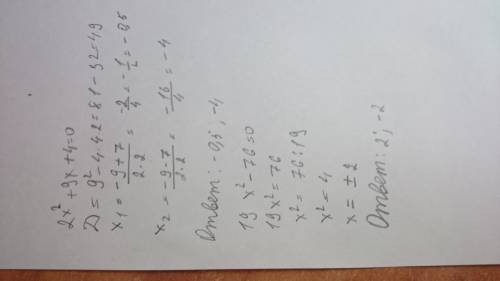 2x² + 9x + 4 = 0
D = 9² - 4·4·2 = 81 - 32 = 49
x₁ = (-9 + 7)/(2·2) = -2/4 = -1/2 = -0,5
x₂ = (-9 - 7)/(2·2) = -16/4 = -4
Ответ: -0,5; -4
19x² - 76 = 0
19x² = 76
x² = 76 : 19
x² = 4
x = ± 2
Ответ: 2; -2